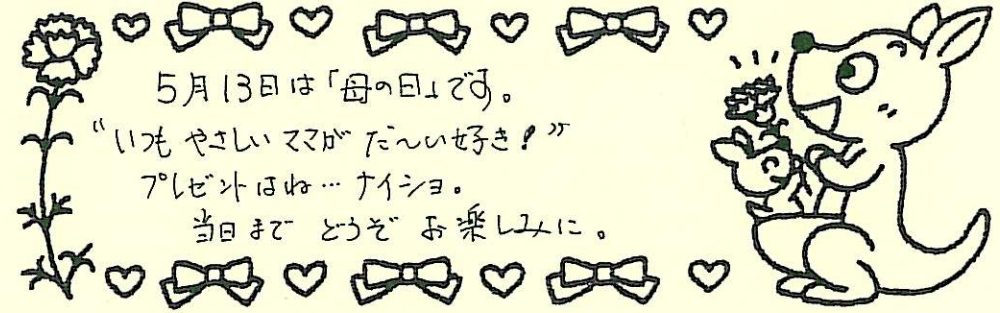 5月13日は「母の日」です。
“いつも やさしい ママが だ〜い好き!”
プレゼントはね… ナイショ。
当日まで どうぞ お楽しみに。